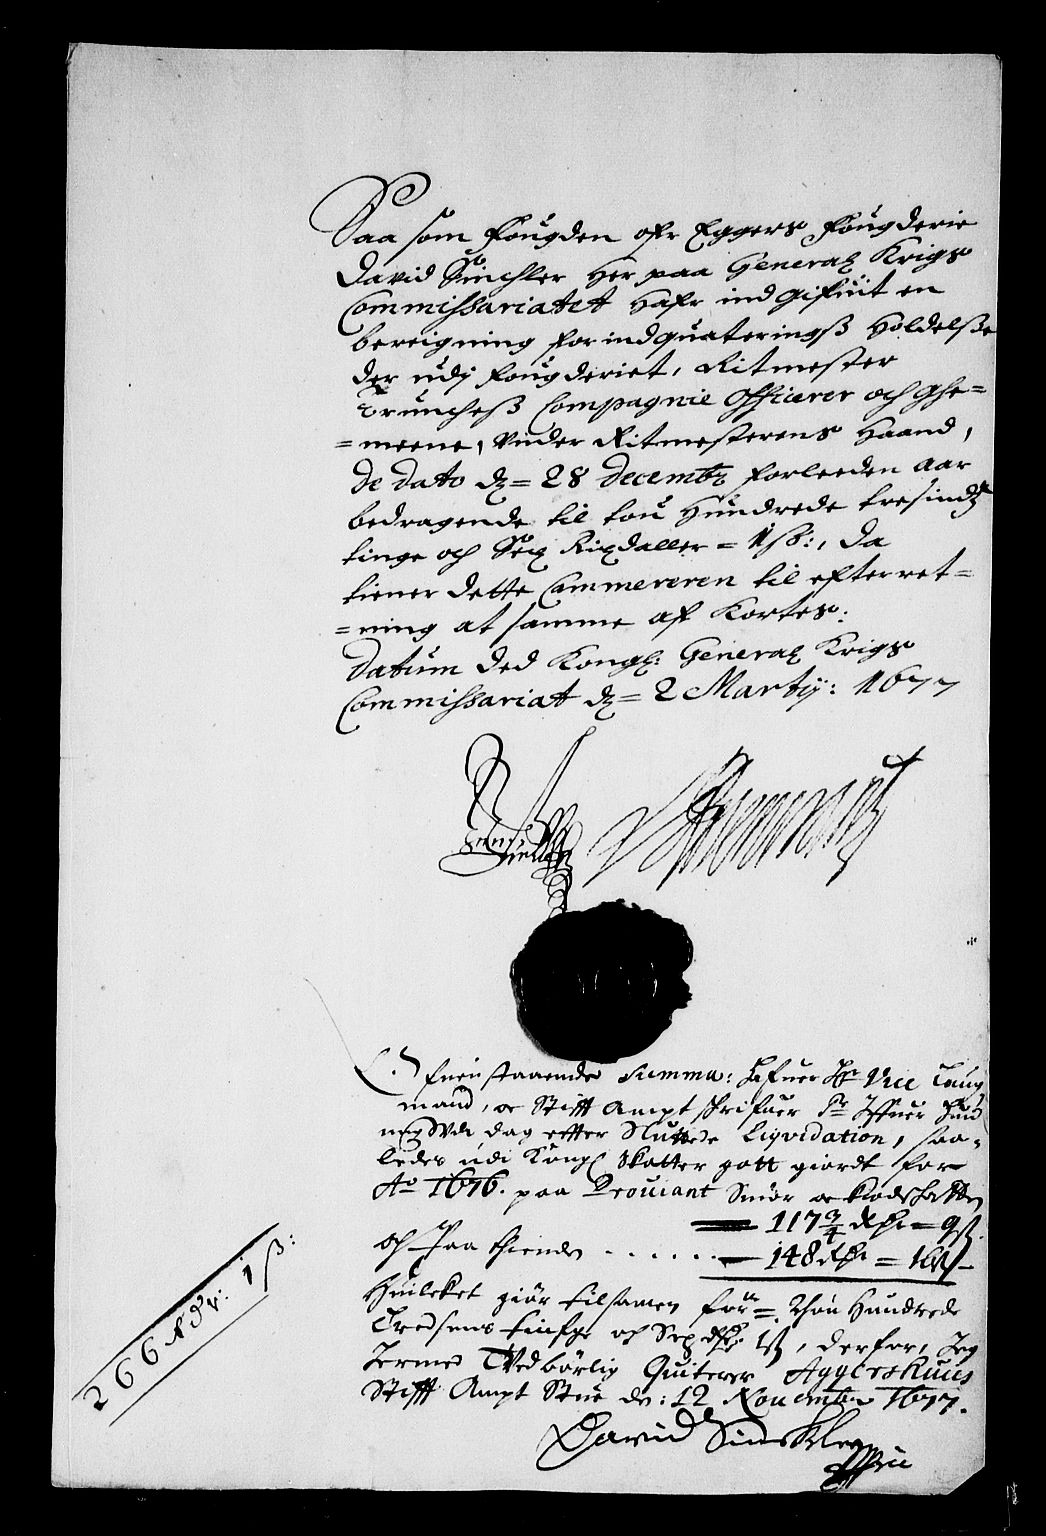 Saa som fougden ofr Eggers fougderie
David Sinchler Her paa General Krigs
Commissariatet Hafr indgifuit en
bereigning for indquateringß Holdelße
der udj fougderiet, Ritmester
Truncheß Compagnie Officerer och Ghe=
=meene, under Ritmesterens Haand,
de dato d = 28 Decembr forleeden Aar
bedragende til tou Hundrede tresinds
tiuge och Sex Rixdaller = 1 sß:, da
tiener dette Cammereren til efterret=
=ning at samme af kortes.
Datum ded Kongl: General Krigs
Commissariat d = 2 Martij: 1677
Ofuenstaaende Summa: Hafuer Hr Vice Laug
mand, oc Stifft Ampt skrifuer Sr
dag effter Sluttede Liqvidation, saa-
ledes udi Kongl Skatter gott giordt for
Ao 1676. paa Prouiant Smør oc
117 3/4 Rdr = 9 ß
och paa thiende . . . . . . 148 Rdr = 16 ß
Huilcket giør tilsamen for = Thou Hundrede
Tredsens tiufge och Sex Rdr 1 ß, derfor, Jeg
hermed Vedbørlig Quiterer Aggershuus
Stifft Ampt Stue den: 12 Nouembr 1677.
David Sinckler
266 Rdr: 1 ß: